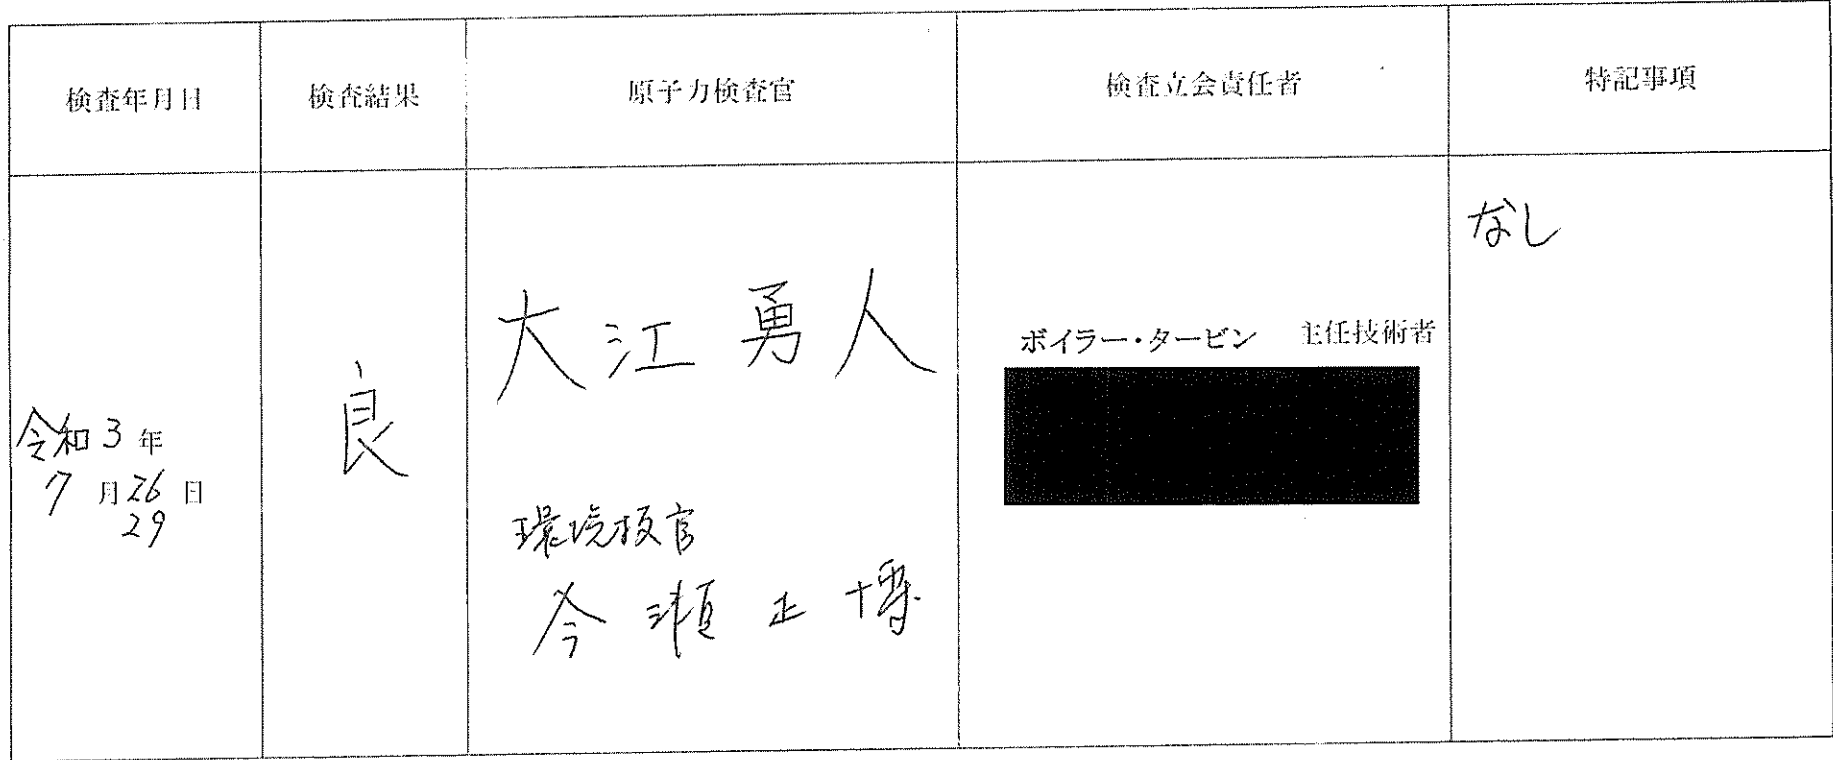 検査年月日
検査結果
原子力検査官
検査立会責任者
特記事項
令和3年
7月26日
29
良
大江勇人
環境技官
今瀬正博
ボイラー・タービン 主任技術者
なし